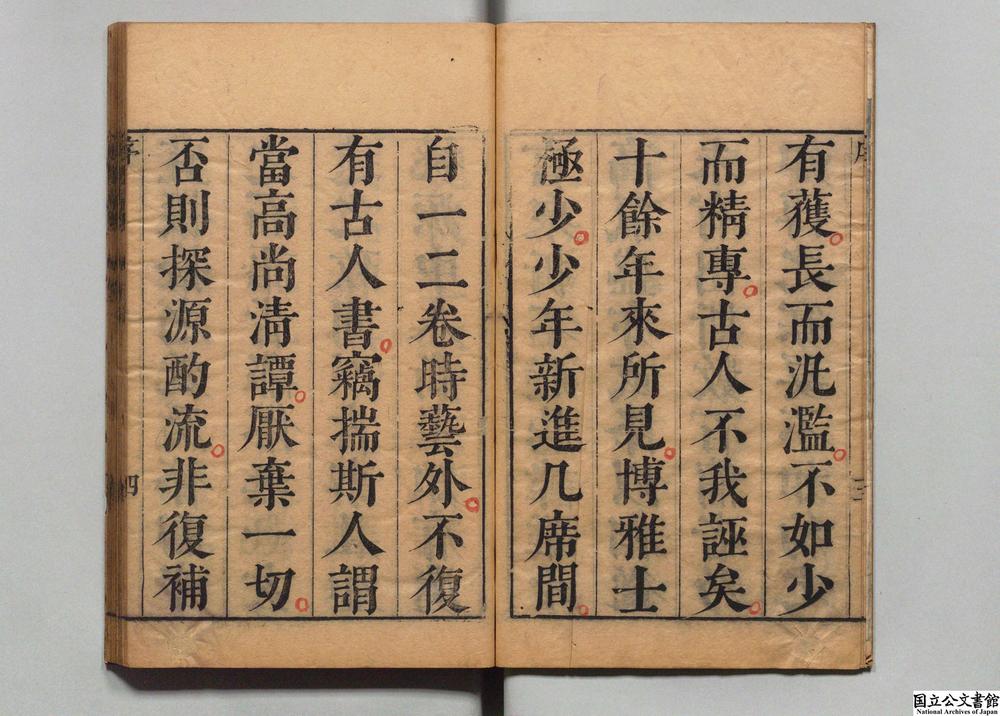 有獲。長而汎濫。不如少
而精專。古人不我誣矣。
十餘年來所見。博雅士
極少。少年新進几席間。
自一二卷時藝外。不復
有古人書。竊揣斯人謂
當高尚清譚。厭棄一切。
否則探源酌流。非復補
序
三
序
四
国立公文書館
National Archives of Japan